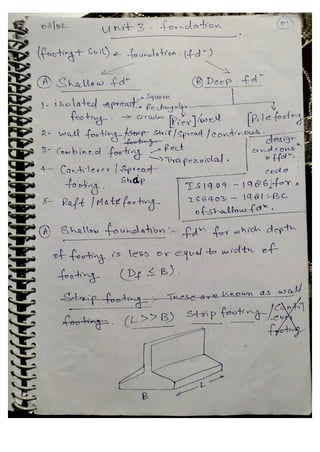 08/02
01
Unit 3 - foundation
(footing + soil) ← foundation. (fdⁿ)
(A) Shallow fdⁿ
(B) Deep. fdⁿ
1- isolated spread → Square
→ Rectangular
footing. → circular
[Pier]/well
[Pile footing]
2- wall footing / Strip / Spread / continuous.
footing
3- Combined footing → Rect
→ Trapezoidal.
design
and consⁿ
of fdⁿ.
4- Cantilever / Spread
footing. Strap
code
IS1904 - 1986 for
5- Raft / Mate footing.
IS6403 - 1981 :- BC
of shallow fdⁿ.
(A) Shallow foundation :- fdⁿ for which depth
of footing is less or equal to width of
footing (Df ≤ B).
Strip footing :- These are known as wall
footing. (L >> B) Strip footing /
footing
B
L